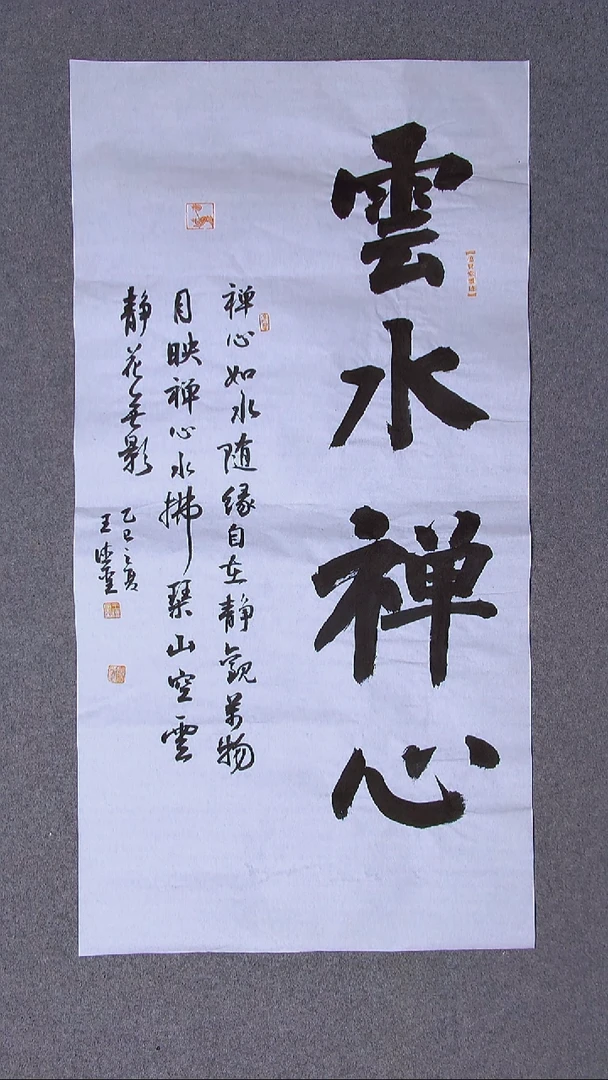 雲水禅心
禅心如水随缘自在静观万物
月映禅心水拂琴山空云
静花无影
乙巳之夏
王